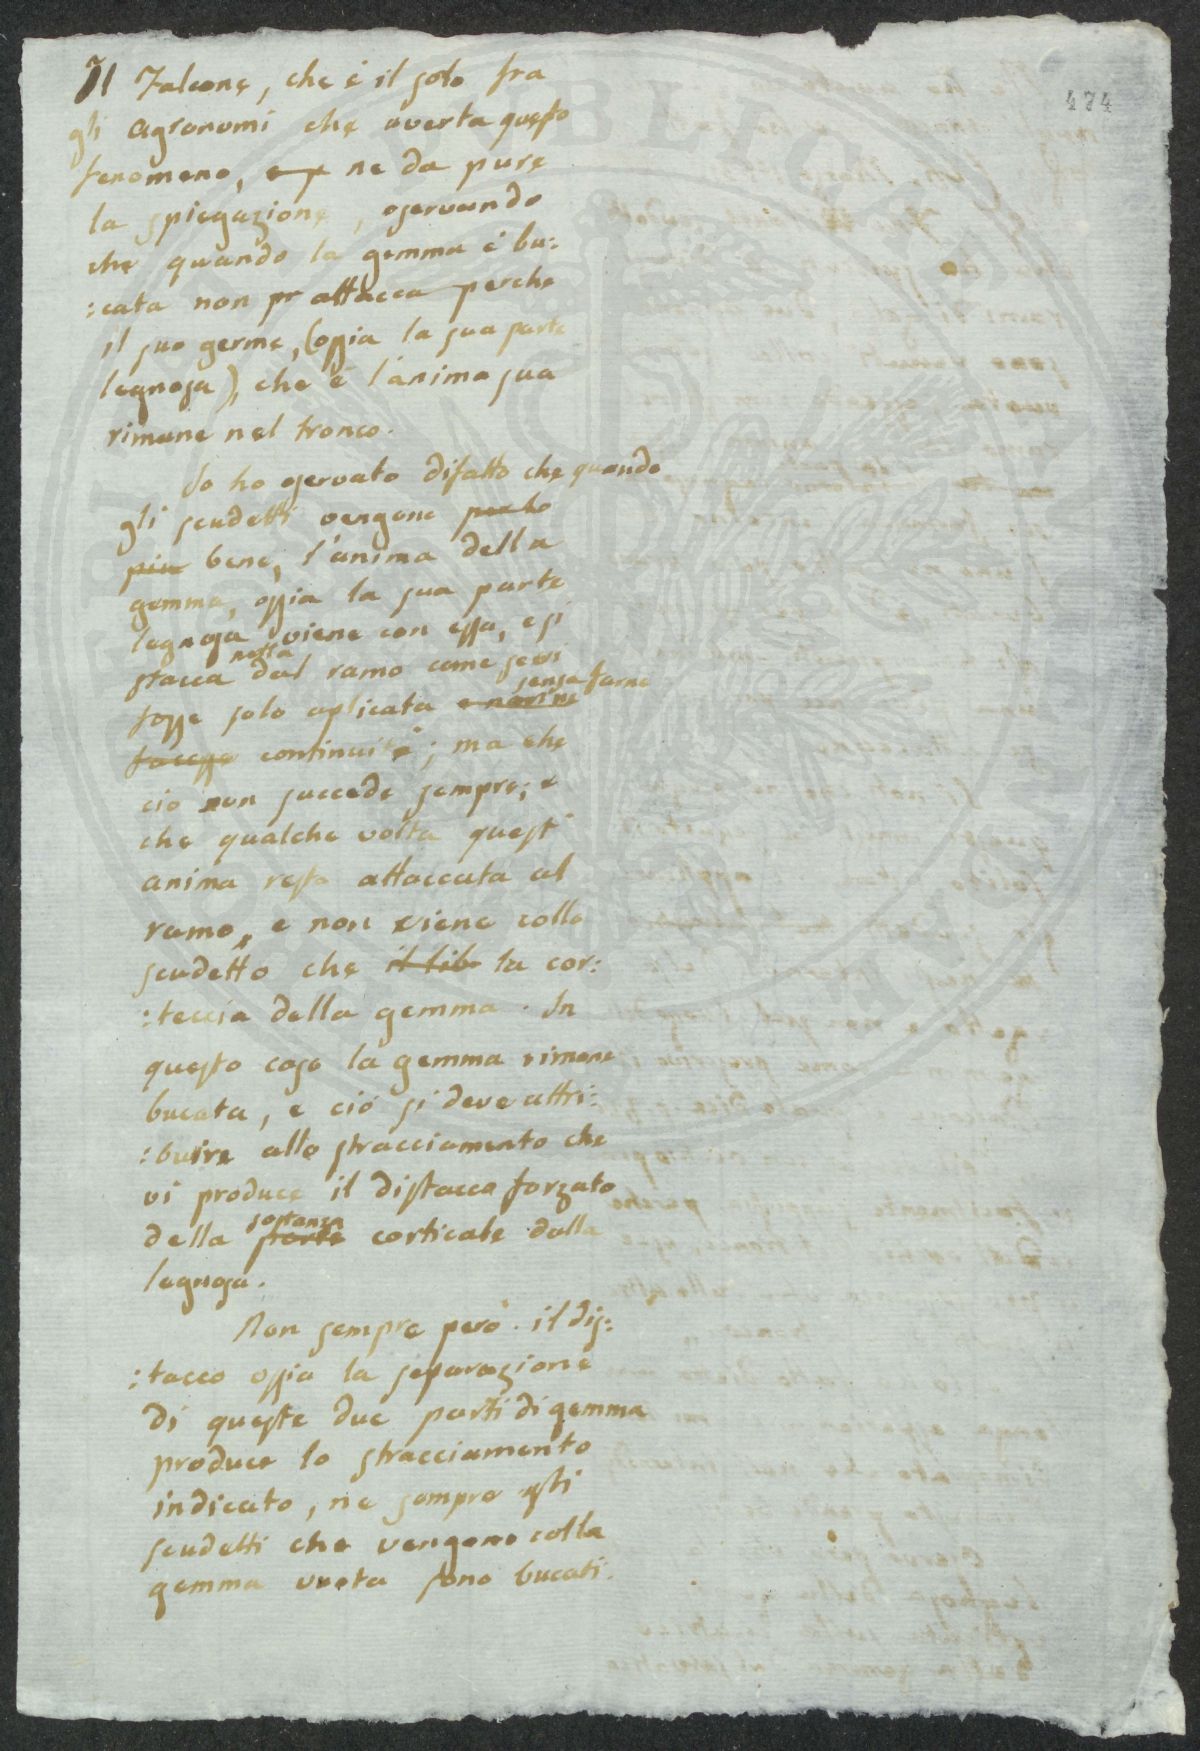 474
Il Falcone, che è il solo fra
gli Agronomi che averta questo
fenomeno, e p ne da pure
la spiegazione, oservando
che quando la gemma è bu:
:cata non pr attacca perche
il suo germe, (ossia la sua parte
legnosa), che è l'anima sua
rimane nel tronco.
Io ho oservato difatto che quando
gli scudetti vengono
piu bene, l'anima della
gemma, ossia la sua parte
legnosa viene con essa, e si
stacca netta dal ramo come se vi
fosse solo aplicata e non ne senza farne
facesse continuità; ma che
ciò non succede sempre; e
che qualche volta quest'
anima resta attaccata al
ramo, e non viene collo
scudetto che il lib la cor:
:teccia della gemma. In
questo caso la gemma rimane
bucata, e ciò si deve attri:
:buire allo stracciamento che
vi produce il distacco forzato
della parte sostanza corticale dalla
legnosa.
Non sempre però il dis:
:tacco ossia la separazione
di queste due parti di gemma
produce lo stracciamento
indicato, ne sempre gli
scudetti che vengono colla
gemma vuota sono bucati.